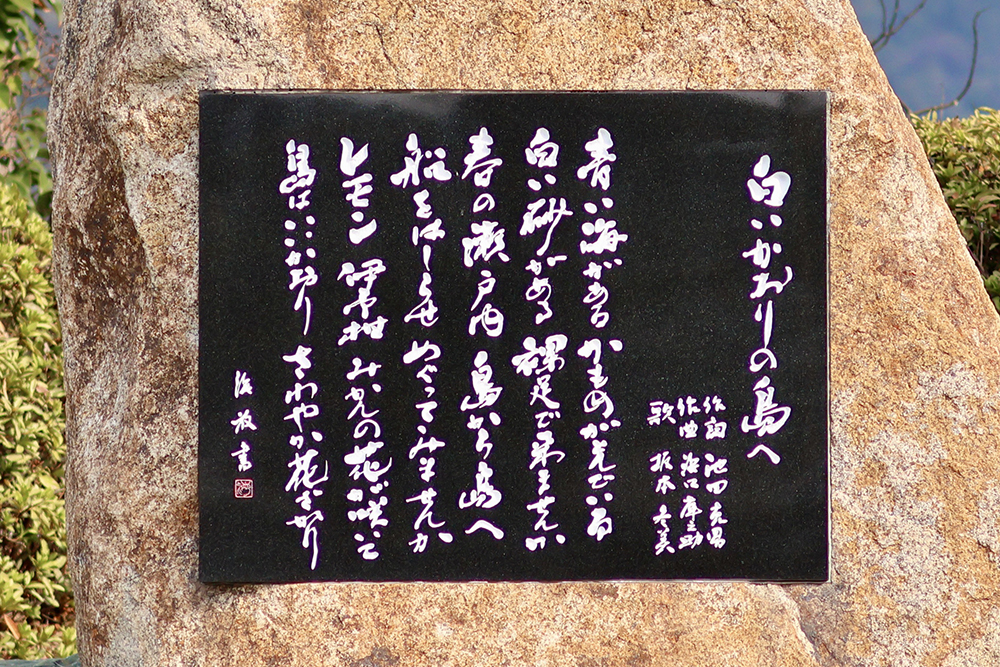 白いかおりの島へ
作詞 池田充男
作曲 浜口庫之助
歌 坂本冬美
青い海がある かもめがとんでいる
白い砂がある 裸足で来ませんか
春の瀬戸内 島から島へ
船をはしらせ めぐってみませんか
レモン 伊予柑 みかんの花が咲いて
島はいいかおり さわやか花ざかり
書